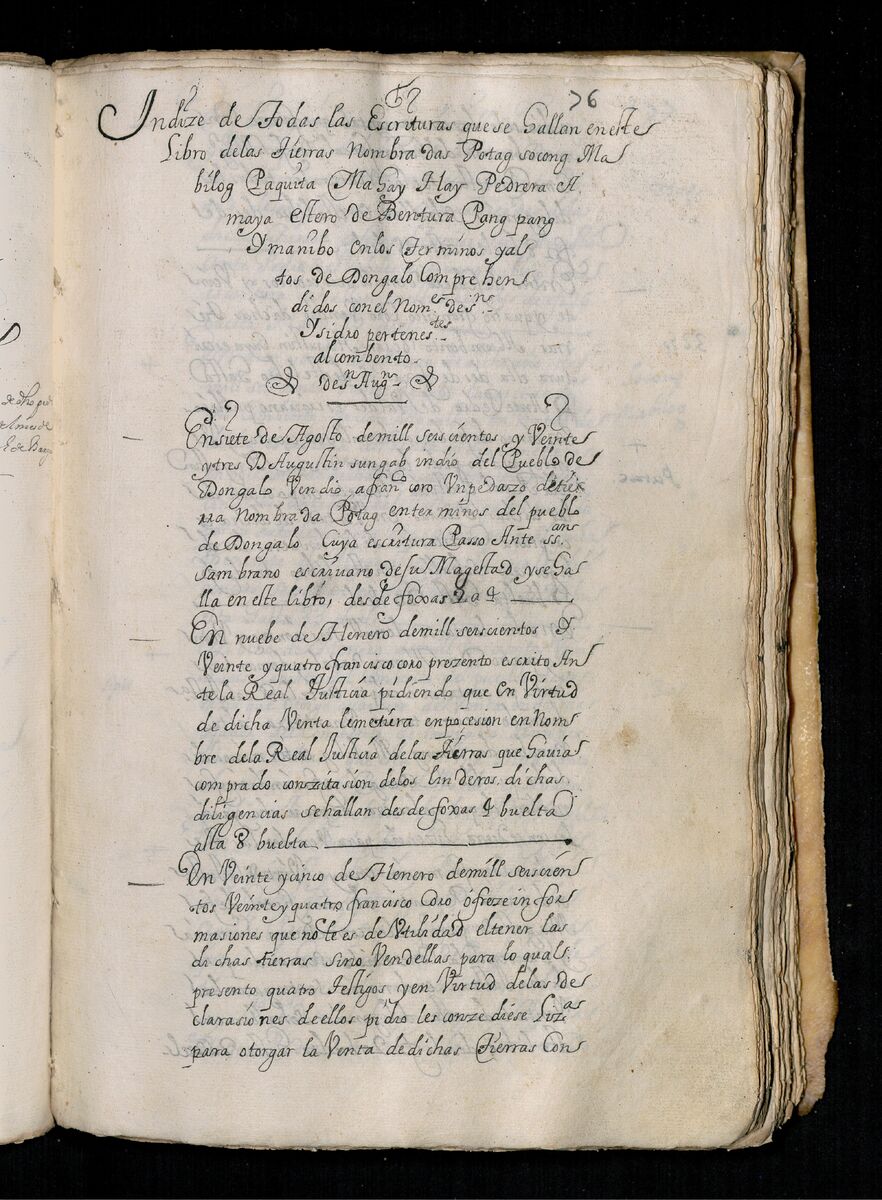 76
Indize de todas las Escrituras que se hallan en este
Libro delas tierras Nombradas Potag socong Ma
bilog Paquita Mahay Hay Pedrera A
maya estero de Bentura Pang pang
Ymanibo enlos Terminos yal
tos de Dongalo Comprehen
didos conel Nom.es de sn
Ysidro pertenes.tes
al combento
de sn Augn
En siete de Agosto demill seiscientos y Veinte
ytres D Augustin sungab indio del Pueblo de
Dongalo Vendio a franco coro Vnpedazzo detie
rra Nombrada Potag enterminos del pueblo
de Dongalo Cuya escritura Passo Ante
Sambrano escrivano de su Magestad yse ha
lla en este libro, desde foxas 2 a 4
En nuebe de Henero demill seiscientos Y
Veinte y quatro francisco coro prezento escrito An
te la Real Justicia pidiendo que en Virtud
de dicha Venta lemetiera enpocesion en Nom
bre dela Real Justicia delas tierras que havia
comprado conszitasion delos linderos. dichas
diligencias sehallan desde foxas 4 buelta
asta 8 buelta.
En Veinte ycinco de Henero demill seiscien
tos Veinte y quatro francisco Coro ofreze infor
masiones que no le es de Vtilidad eltener las
dichas tierras sino Vendellas para lo qual
presento quatro testigos yen Virtud delas de
clarasiones de ellos pidio les conszediese Liz.as
para otorgar la Venta de dichas Tierras Con